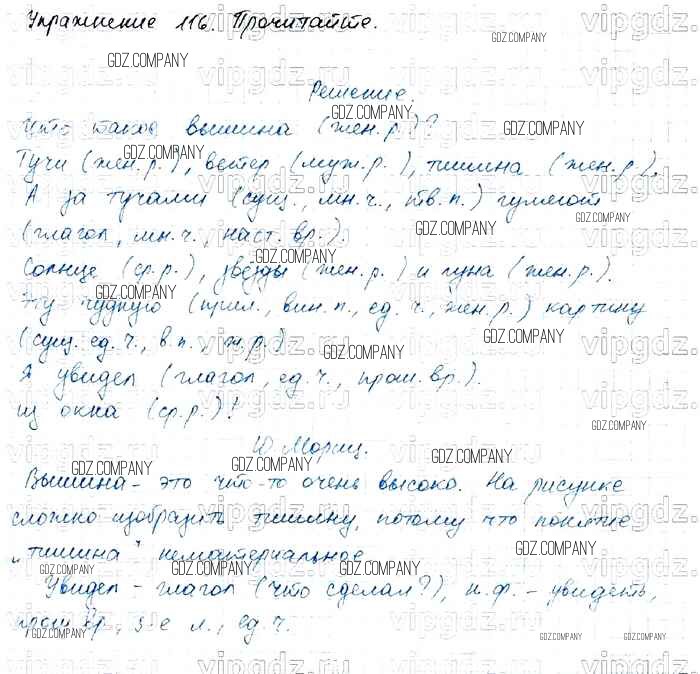 Упражнение 116. Прочитайте.
Решение.
Что такое вышина (жен.р.)?
Тучи (жен.р.), ветер (муж.р.), тишина (жен.р.).
А за тучами (сущ., мн.ч., тв.п.) гуляют
(глагол, мн.ч., наст. вр.).
Солнце (ср.р.), звёзды (жен.р.) и луна (жен.р.).
Эту чудную (прил., вин.п., ед.ч., жен.р.) картину
(сущ. ед.ч., в.п., ж.р.)
Я увидел (глагол, ед.ч., прош.вр.).
из окна (ср.р.)!
Ю Мориц.
Вышина - это что-то очень высоко. На рисунке
сложно изобразить тишину, потому что понятие
„тишина" нематериальное
Увидел - глагол (что сделал?), н.ф. - увидеть,
прош вр., 3-е л., ед.ч.